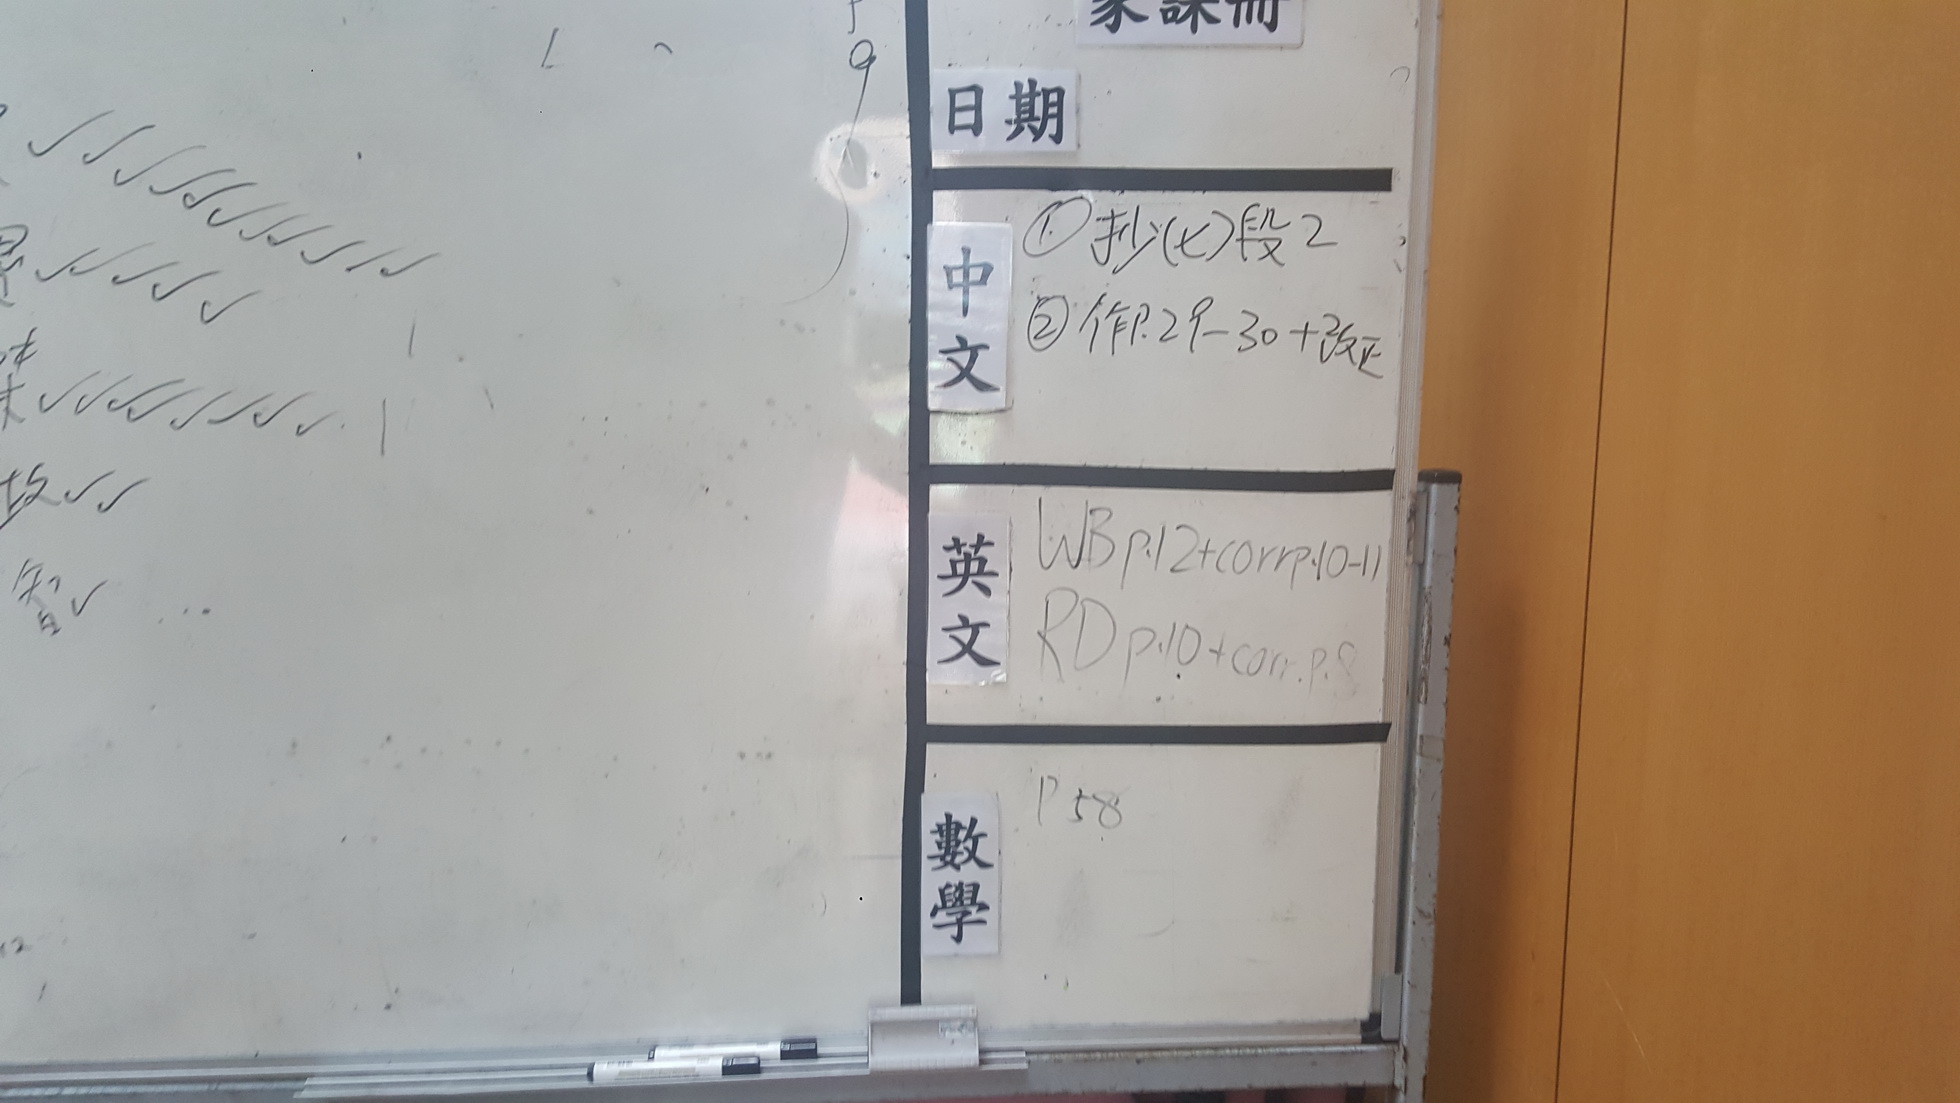 家課冊
日期
中文
① 抄(七)段2
② 作P.29-30+改正
英文
WB p.12+corrp.10-11
RD p.10+corr.p.8
數學
P 58
故✓✓
智✓